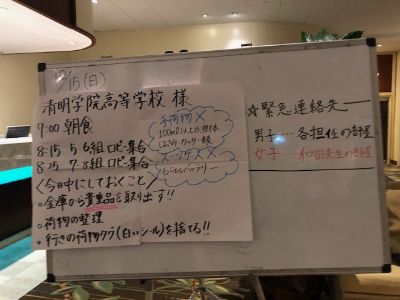 12/15(日)
清明学院高等学校 様
7:00 朝食
8:15 5,6組 ロビー集合
8:25 7,8組 ロビー集合
<今日中にしておくこと>
○金庫から貴重品を取り出す!!
○荷物の整理
○行きの荷物タグ(白いシール)を捨てる!!
手荷物 ×
100ml以上の液体
はさみ カッター類
スーツケース ×
モバイルバッテリー
☆緊急連絡先
男子‥‥各担任の部屋
女子‥‥和田先生の部屋